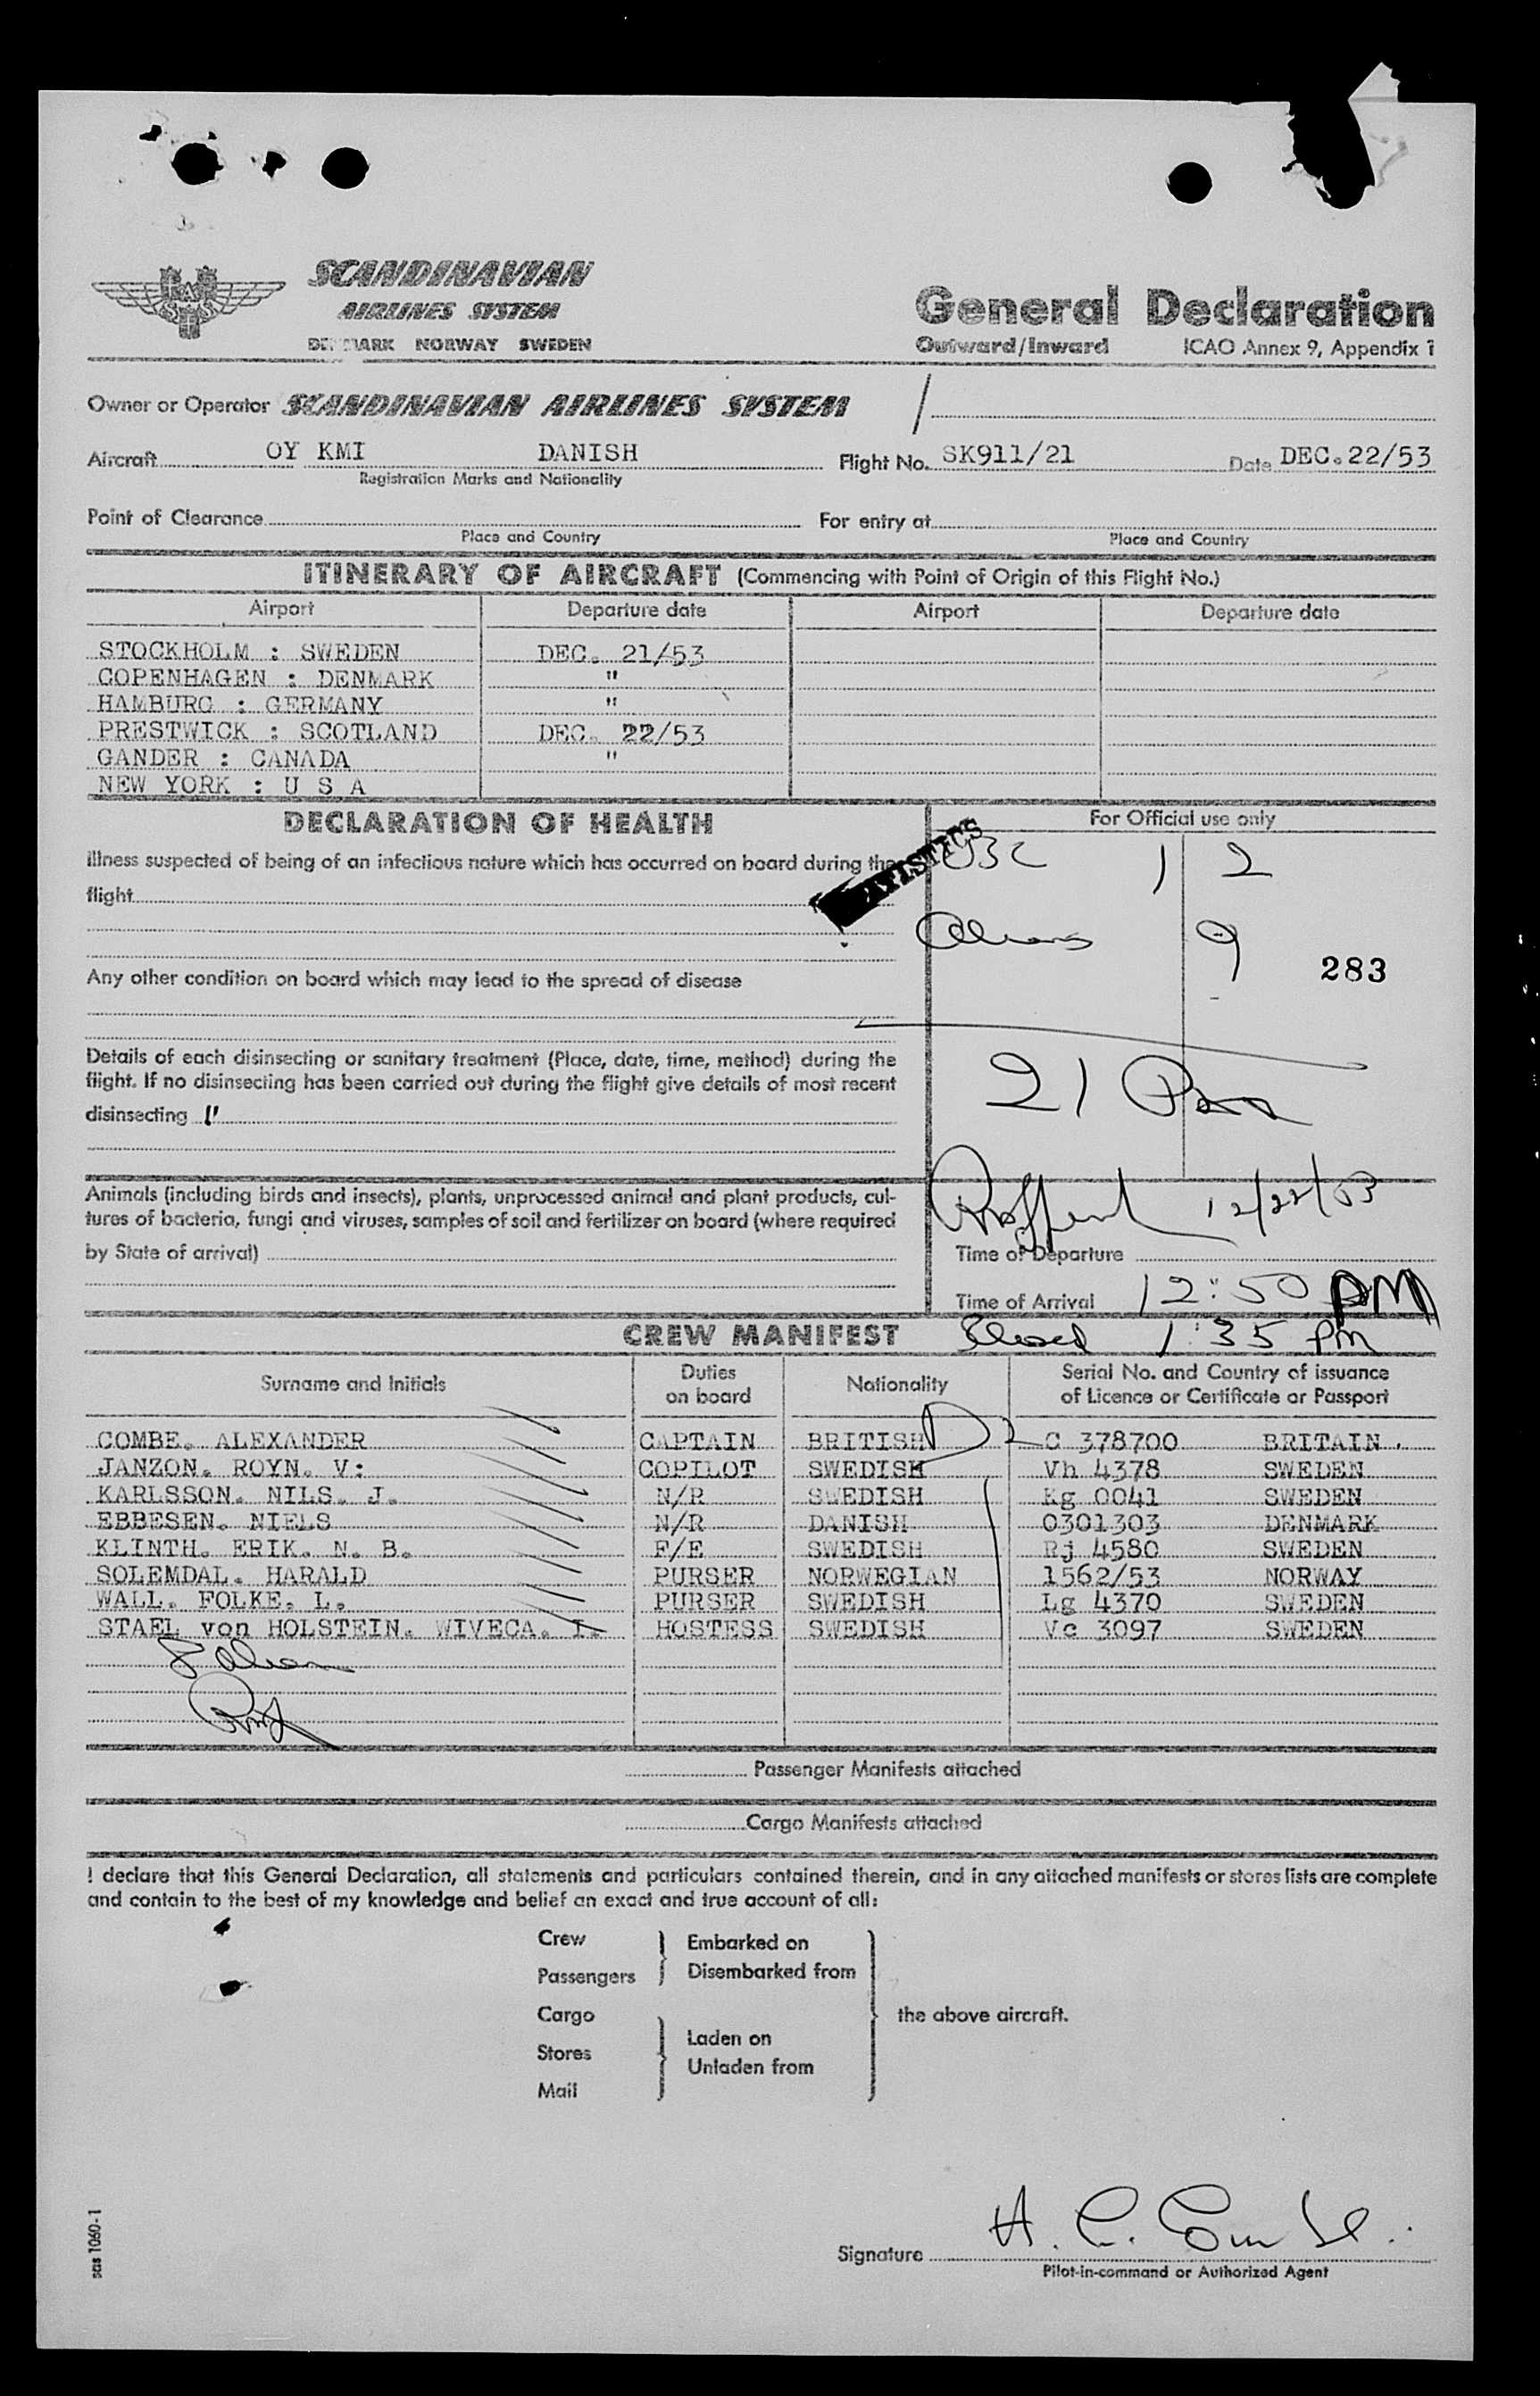 SCANDINAVIAN
AIRLINES SYSTEM
DENMARK NORWAY SWEDEN
General Declaration
Outward/Inward ICAO Annex 9, Appendix 1
Owner or Operator SCANDINAVIAN AIRLINES SYSTEM /
Aircraft OY KMI DANISH Flight No. SK911/21 Date DEC.22/53
Registration Marks and Nationality
Point of Clearance For entry at
Place and Country Place and Country
ITINERARY OF AIRCRAFT (Commencing with Point of Origin of this Flight No.)
Airport Departure date Airport Departure date
STOCKHOLM : SWEDEN DEC. 21/53
COPENHAGEN : DENMARK "
HAMBURG : GERMANY "
PRESTWICK : SCOTLAND DEC. 22/53
GANDER : CANADA "
NEW YORK : U S A
DECLARATION OF HEALTH
For Official use only
Illness suspected of being of an infectious nature which has occurred on board during the
flight
USC 1 2
Aliens 9
283
Any other condition on board which may lead to the spread of disease
Details of each disinsecting or sanitary treatment (Place, date, time, method) during the
flight. If no disinsecting has been carried out during the flight give details of most recent
disinsecting
21 Pass
Animals (including birds and insects), plants, unprocessed animal and plant products, cul-
tures of bacteria, fungi and viruses, samples of soil and fertilizer on board (where required
by State of arrival)
12/22/53
Time of Departure
Time of Arrival 12:50 PM
CREW MANIFEST
1:35 PM
Surname and Initials Duties on board Nationality Serial No. and Country of issuance of Licence or Certificate or Passport
COMBE. ALEXANDER CAPTAIN BRITISH C 378700 BRITAIN.
JANZON. ROYN. V: COPILOT SWEDISH Vh 4378 SWEDEN
KARLSSON. NILS. J. N/R SWEDISH Kg 0041 SWEDEN
EBBESEN. NIELS N/R DANISH 0301303 DENMARK
KLINTH. ERIK. N. B. F/E SWEDISH Rj 4580 SWEDEN
SOLEMDAL. HARALD PURSER NORWEGIAN 1562/53 NORWAY
WALL. FOLKE. L. PURSER SWEDISH Lg 4370 SWEDEN
STAEL von HOLSTEIN. WIVECA. I. HOSTESS SWEDISH Vc 3097 SWEDEN
Passenger Manifests attached
Cargo Manifests attached
I declare that this General Declaration, all statements and particulars contained therein, and in any attached manifests or stores lists are complete
and contain to the best of my knowledge and belief an exact and true account of all:
Crew
Passengers
Embarked on
Disembarked from
Cargo
Stores
Mail
Laden on
Unladen from
the above aircraft.
sas 1060-1
Signature A. C. Combe.
Pilot-in-command or Authorized Agent